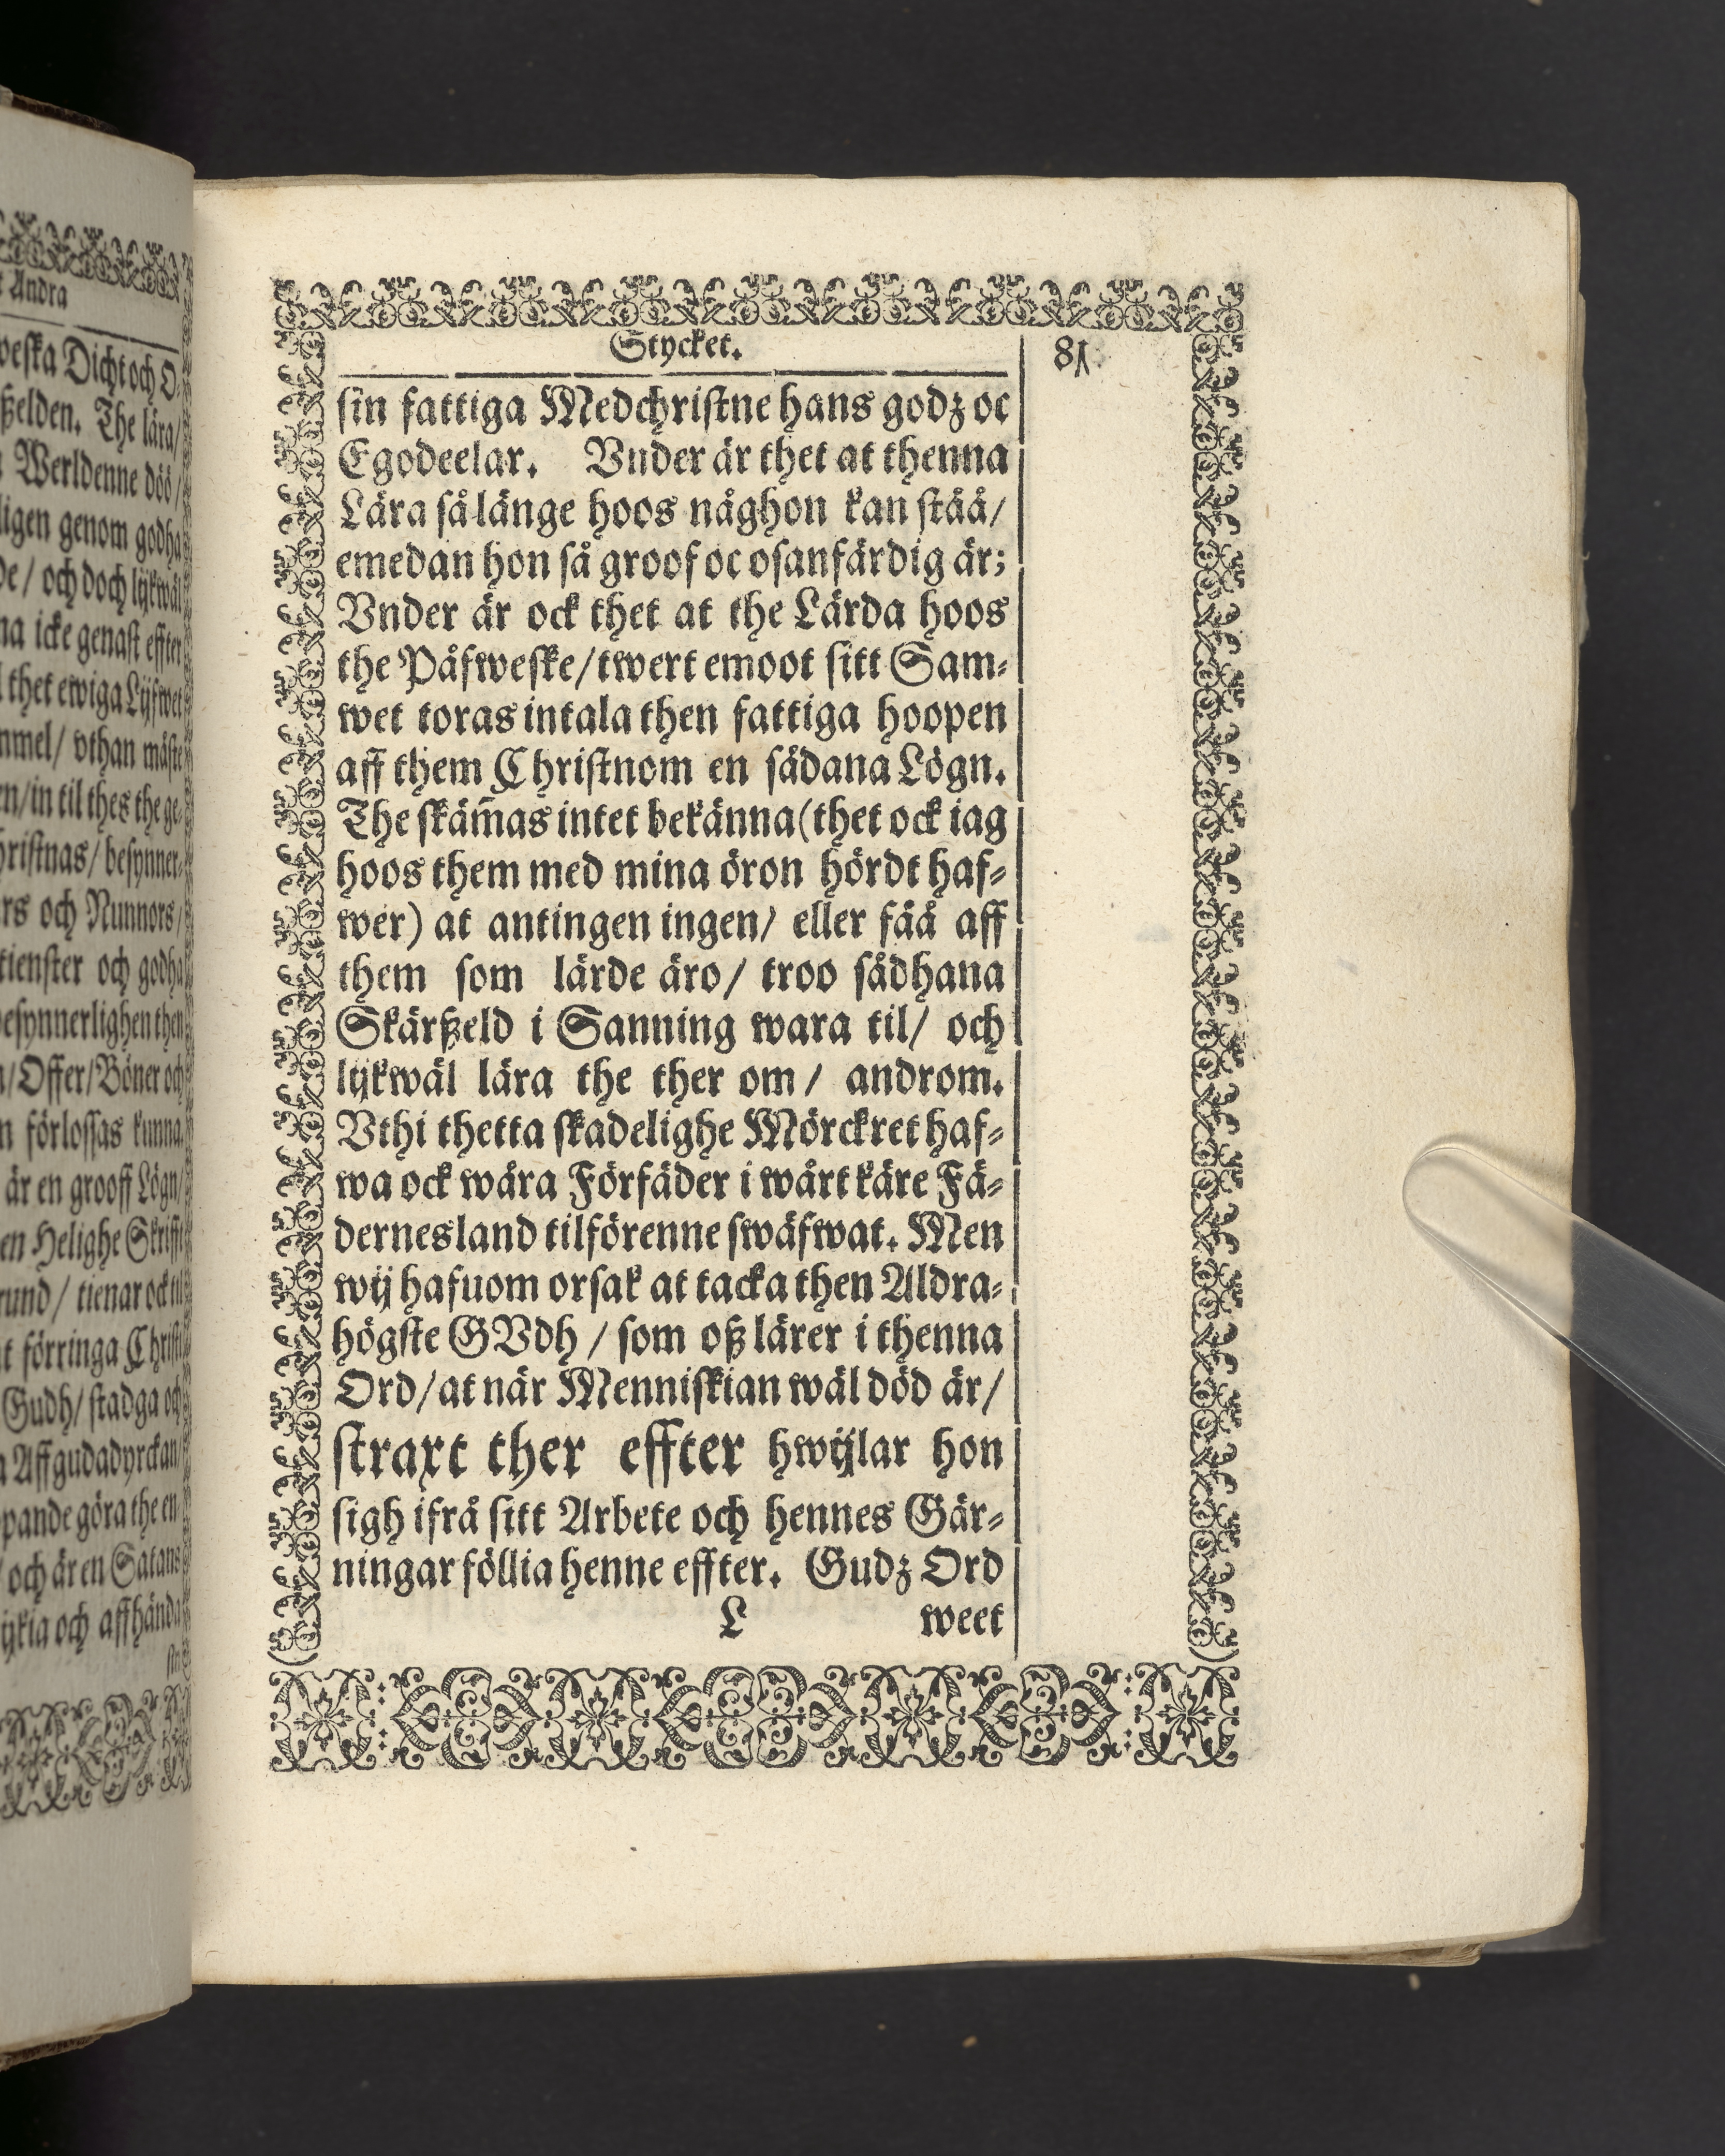 t Andra
weska Dicht och O-
ßelden. The lära/
Werldenne döö/
ligen genom godha
de/ och doch lijkwäl
na icke genast effter
thet ewiga Lijfwet
mmel/ vthan måste
en/in til thes the ge-
hristnas/ besynner-
rs och Nunnors/
tienster och godha
besynnerlighen then
n/Offer/Böner och
n förlossas kunna.
är en grooff Lögn/
en Helighe Skrifft
rund/ tienar ock til
t förringa Christi
Gudh/ stadga och
a Affgudadyrckan/
pande göra the en
och är en Satans
ijkia och affhända
sin
Stycket. 81
sin fattiga Medchristne hans godz oc
Egodeelar. Vnder är thet at thenna
Lära så länge hoos någhon kan ståå/
emedan hon så groof oc osanfärdig är;
Vnder är ock thet at the Lärda hoos
the Påfweske/twert emoot sitt Sam-
wet toras intala then fattiga hoopen
aff them Christnom en sådana Lögn.
The skäm̃as intet bekänna(thet ock iag
hoos them med mina öron hördt haf-
wer) at antingen ingen/ eller fåå aff
them som lärde äro/ troo sådhana
Skärßeld i Sanning wara til/ och
lijkwäl lära the ther om/ androm.
Vthi thetta skadelighe Mörckret haf-
wa ock wåra Förfäder i wårt käre Fä-
dernesland tilförenne swäfwat. Men
wij hafuom orsak at tacka then Aldra-
högste GVdh/ som oß lärer i thenna
Ord/at när Menniskian wäl död är/
straxt ther effter hwijlar hon
sigh ifrå sitt Arbete och hennes Gär-
ningar föllia henne effter. Gudz Ord
L weet